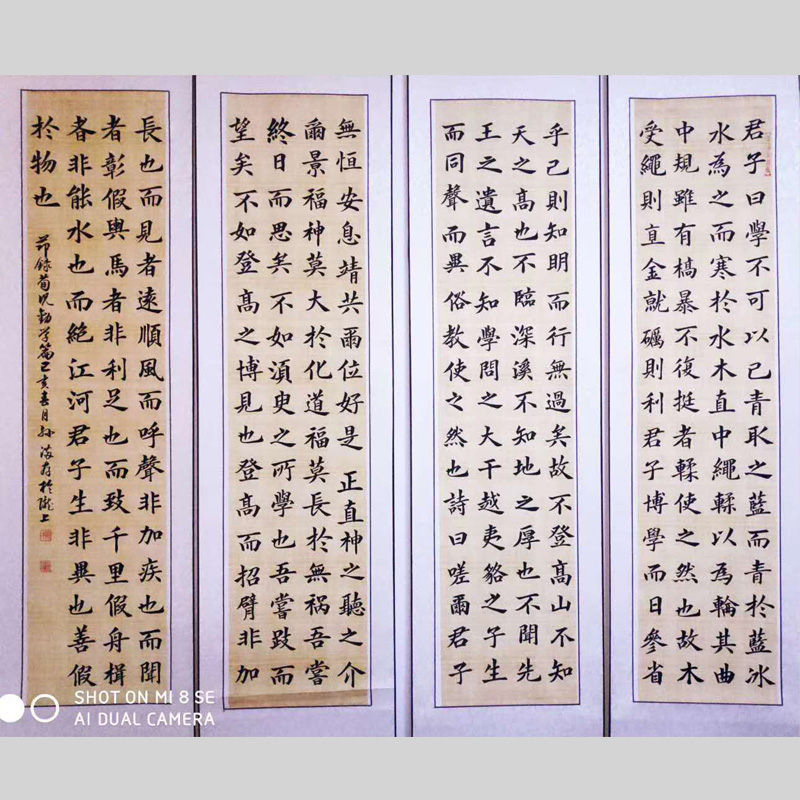 君子曰學不可以已青取之藍而青於藍冰
水為之而寒於水木直中繩輮以為輪其曲
中規雖有槁暴不復挺者輮使之然也故木
受繩則直金就礪則利君子博學而日參省
乎己則知明而行無過矣故不登高山不知
天之高也不臨深溪不知地之厚也不聞先
王之遺言不知學問之大干越夷貉之子生
而同聲而異俗教使之然也詩曰嗟爾君子
無恒安息靖共爾位好是正直神之聽之介
爾景福神莫大於化道福莫長於無禍吾嘗
終日而思矣不如須臾之所學也吾嘗跂而
望矣不如登高之博見也登高而招臂非加
長也而見者遠順風而呼聲非加疾也而聞
者彰假輿馬者非利足也而致千里假舟楫
者非能水也而絕江河君子生非異也善假
於物也
節錄荀況勸学篇己亥春月孙於隴上
SHOT ON MI 8 SE
AI DUAL CAMERA